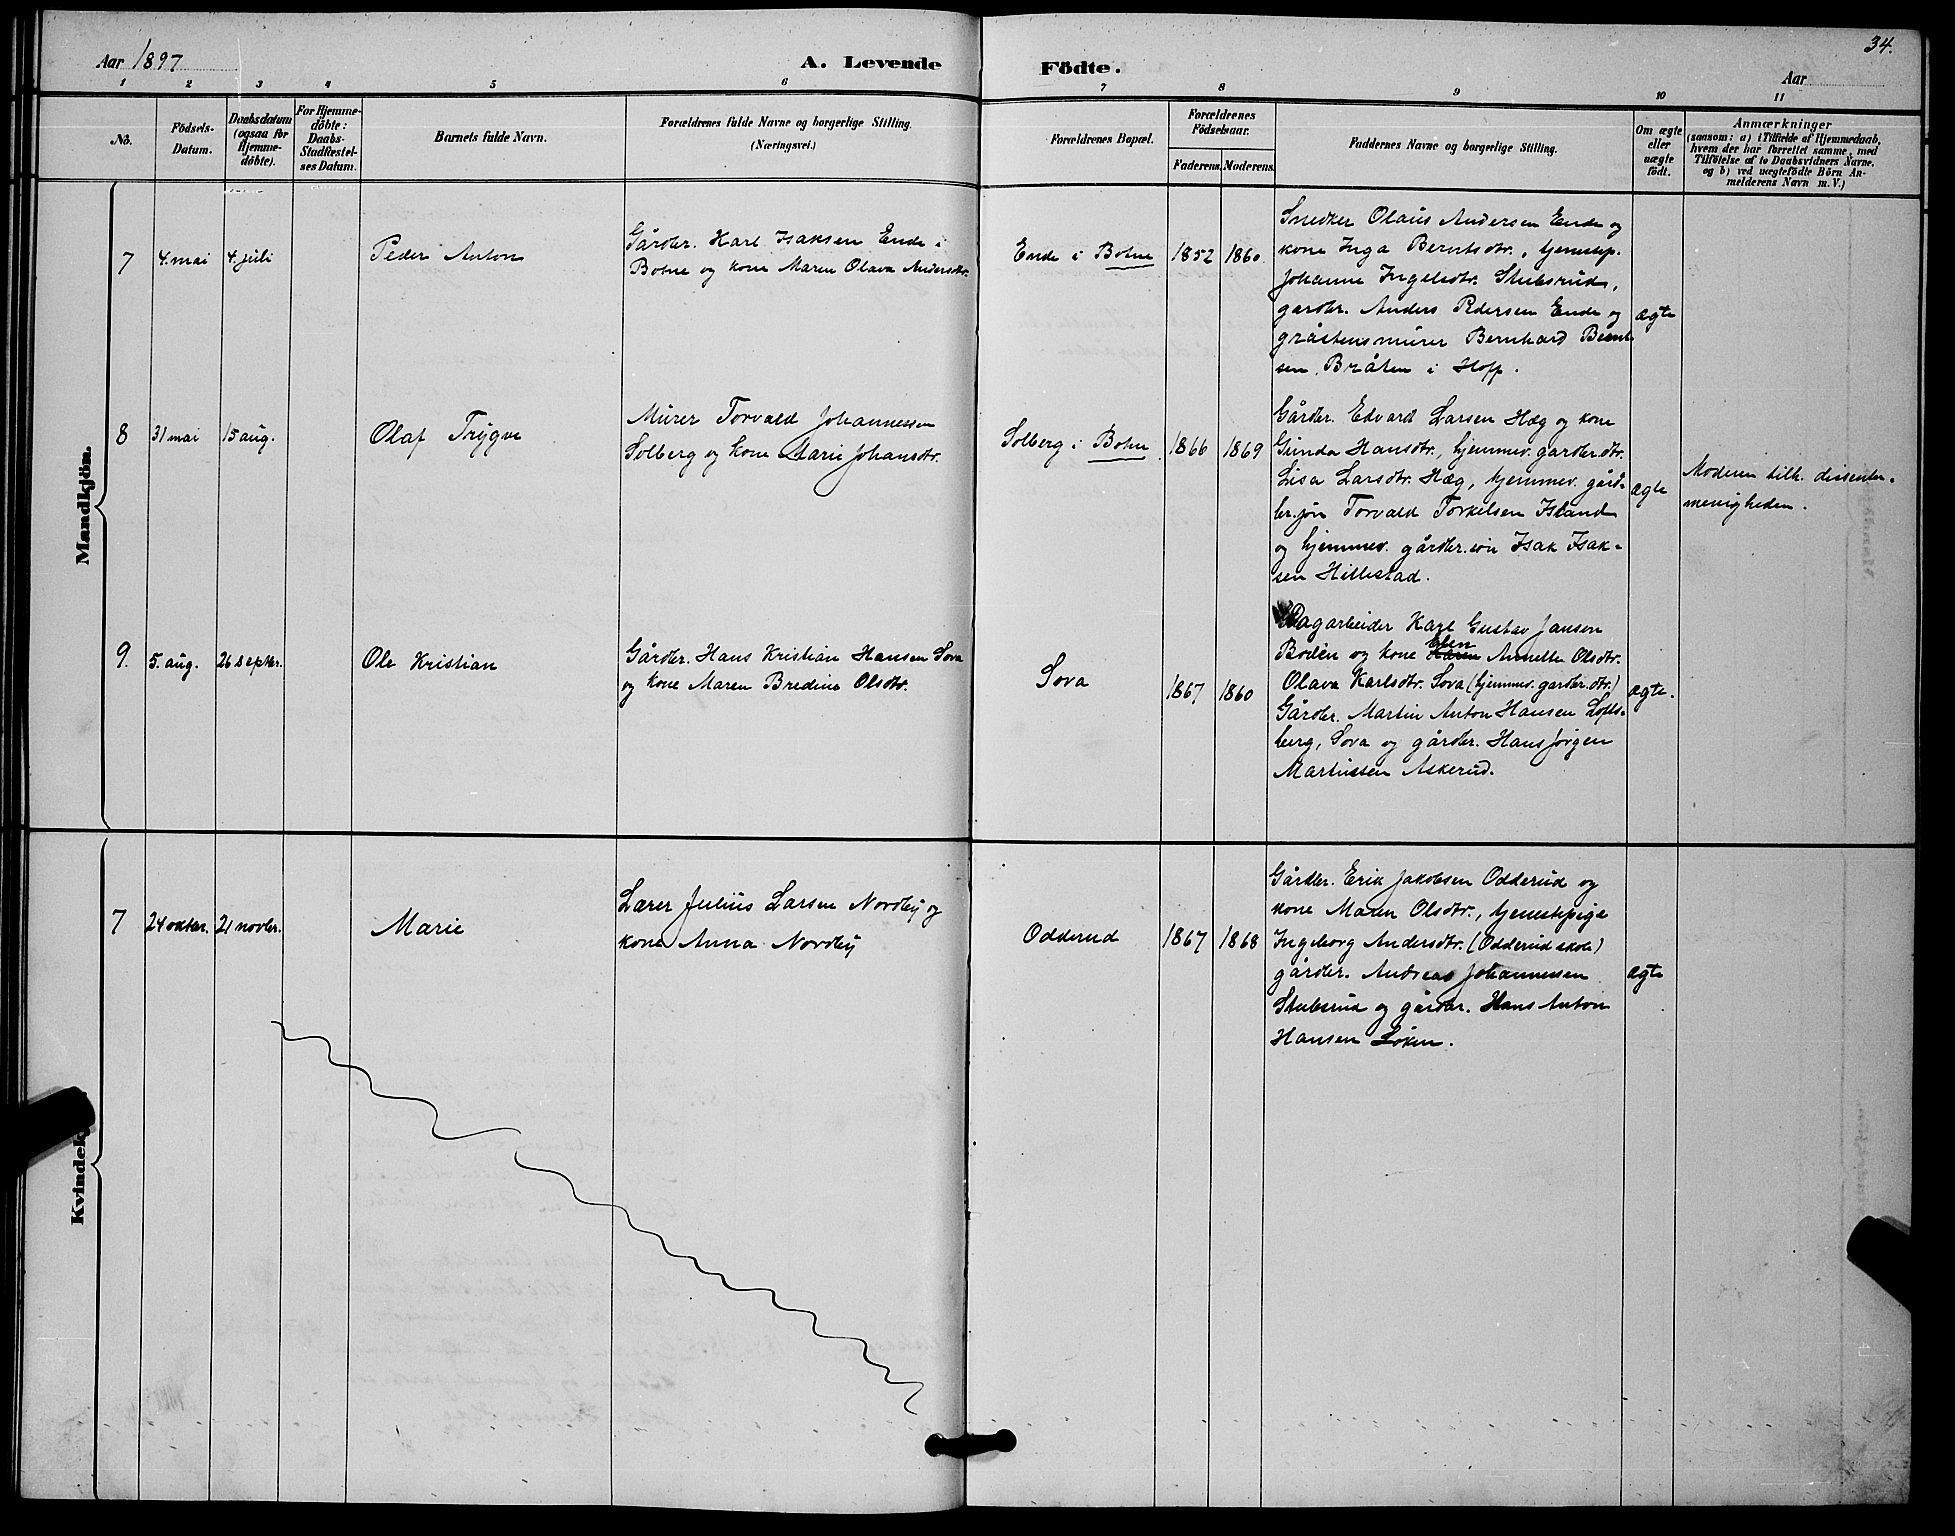 Aar 1897
A. Levende Födte.
34.
Aar
1 2 3 4 5 6 7 8 9 10 11
No.
Födsels-
Datum.
Daabsdatum
(ogsaa for
Hjemme-
döbte).
For Hjemme-
döbte:
Daabs-
Stadfæstel-
ses Datum.
Barnets fulde Navn.
Forældrenes fulde Navne og borgerlige Stilling.
(Næringsvei.)
Forældrenes Bopæl.
Forældrenes
Födselsaar.
Faderens. Moderens.
Faddernes Navne og borgerlige Stilling.
Om ægte
eller
uægte
födt.
Anmærkninger
(saasom: a) i Tilfælde af Hjemmedaab,
hvem der har forrettet samme, med
Tilföielse af to Daabsvidners Navne,
og b) ved uægtefödte Börn An-
melderens Navn m. V.)
Mandkjön.
7
4. mai
4. juli
Peder Anton
Gårdbr. Karl Isaksen Ende i
Botne og kone Maren Olava Andersdtr.
Ende i Botne
1852
1860.
Snedker Olaus Andersen Ende og
kone Inga Berntsdtr., tjenestep.
Johanne Ingelsdtr. Stubsrud,
gardbr. Anders Pedersen Ende og
gråstensmurer Bernhard Bernt-
sen Bråten i Hoff.
ægte
8
31 mai
15 aug.
Olaf Trygve
Murer Torvald Johannessen
Solberg og kone Marie Johansdtr.
Solberg i Botne
1866
1869
Gårdbr. Edvard Larsen Hæg og kone
Gunda Hansdtr., hjemmev. gardbr.dtr.
Lisa Larsdtr. Hæg, hjemmev. gård-
br.søn Torvald Torkelsen Island
og hjemmev. gårdbr.søn Isak Isak-
sen Hillestad.
ægte
Moderen tilh. dissenter-
menigheden.
9.
5. aug.
26 septbr.
Ole Kristian
Gårdbr. Hans Kristian Hansen Sova
og kone Maren Bredine Olsdtr.
Sova
1867
1860
Dagarbeider Karl Gustav Jansen
Bodèn og kone Annette Olsdtr.
Olava Karlsdtr. Sova (hjemmev. gardbr. dtr.)
Gårdbr. Martin Anton Hansen Lofts-
berg, Sova og gårdbr. Hans Jørgen
Martinssen Askerud.
ægte.
Kvindek
7
24 oktbr.
21 novbr.
Marie
Lærer Julius Larsen Nordby og
kone Anna Nordby
Odderud
1867
1868
Gårdbr. Erik Jakobsen Odderud og
kone Maren Olsdtr., tjenestepige
Ingeborg Andersdtr. (Odderud skole)
gårdbr. Andreas Johannessen
Stubsrud og gårdbr. Hans Anton
Hansen Løken.
ægte